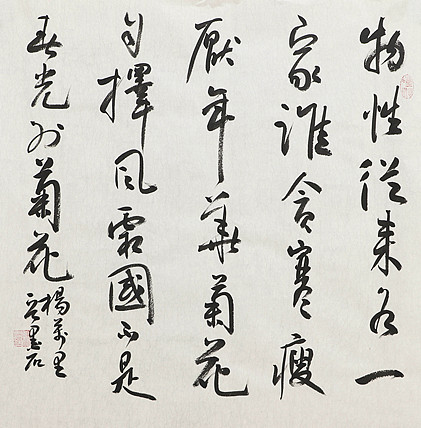 物性從来各一
家誰貪寒瘦
厭年華菊花
自擇风霜國不是
春光外菊花
楊萬里